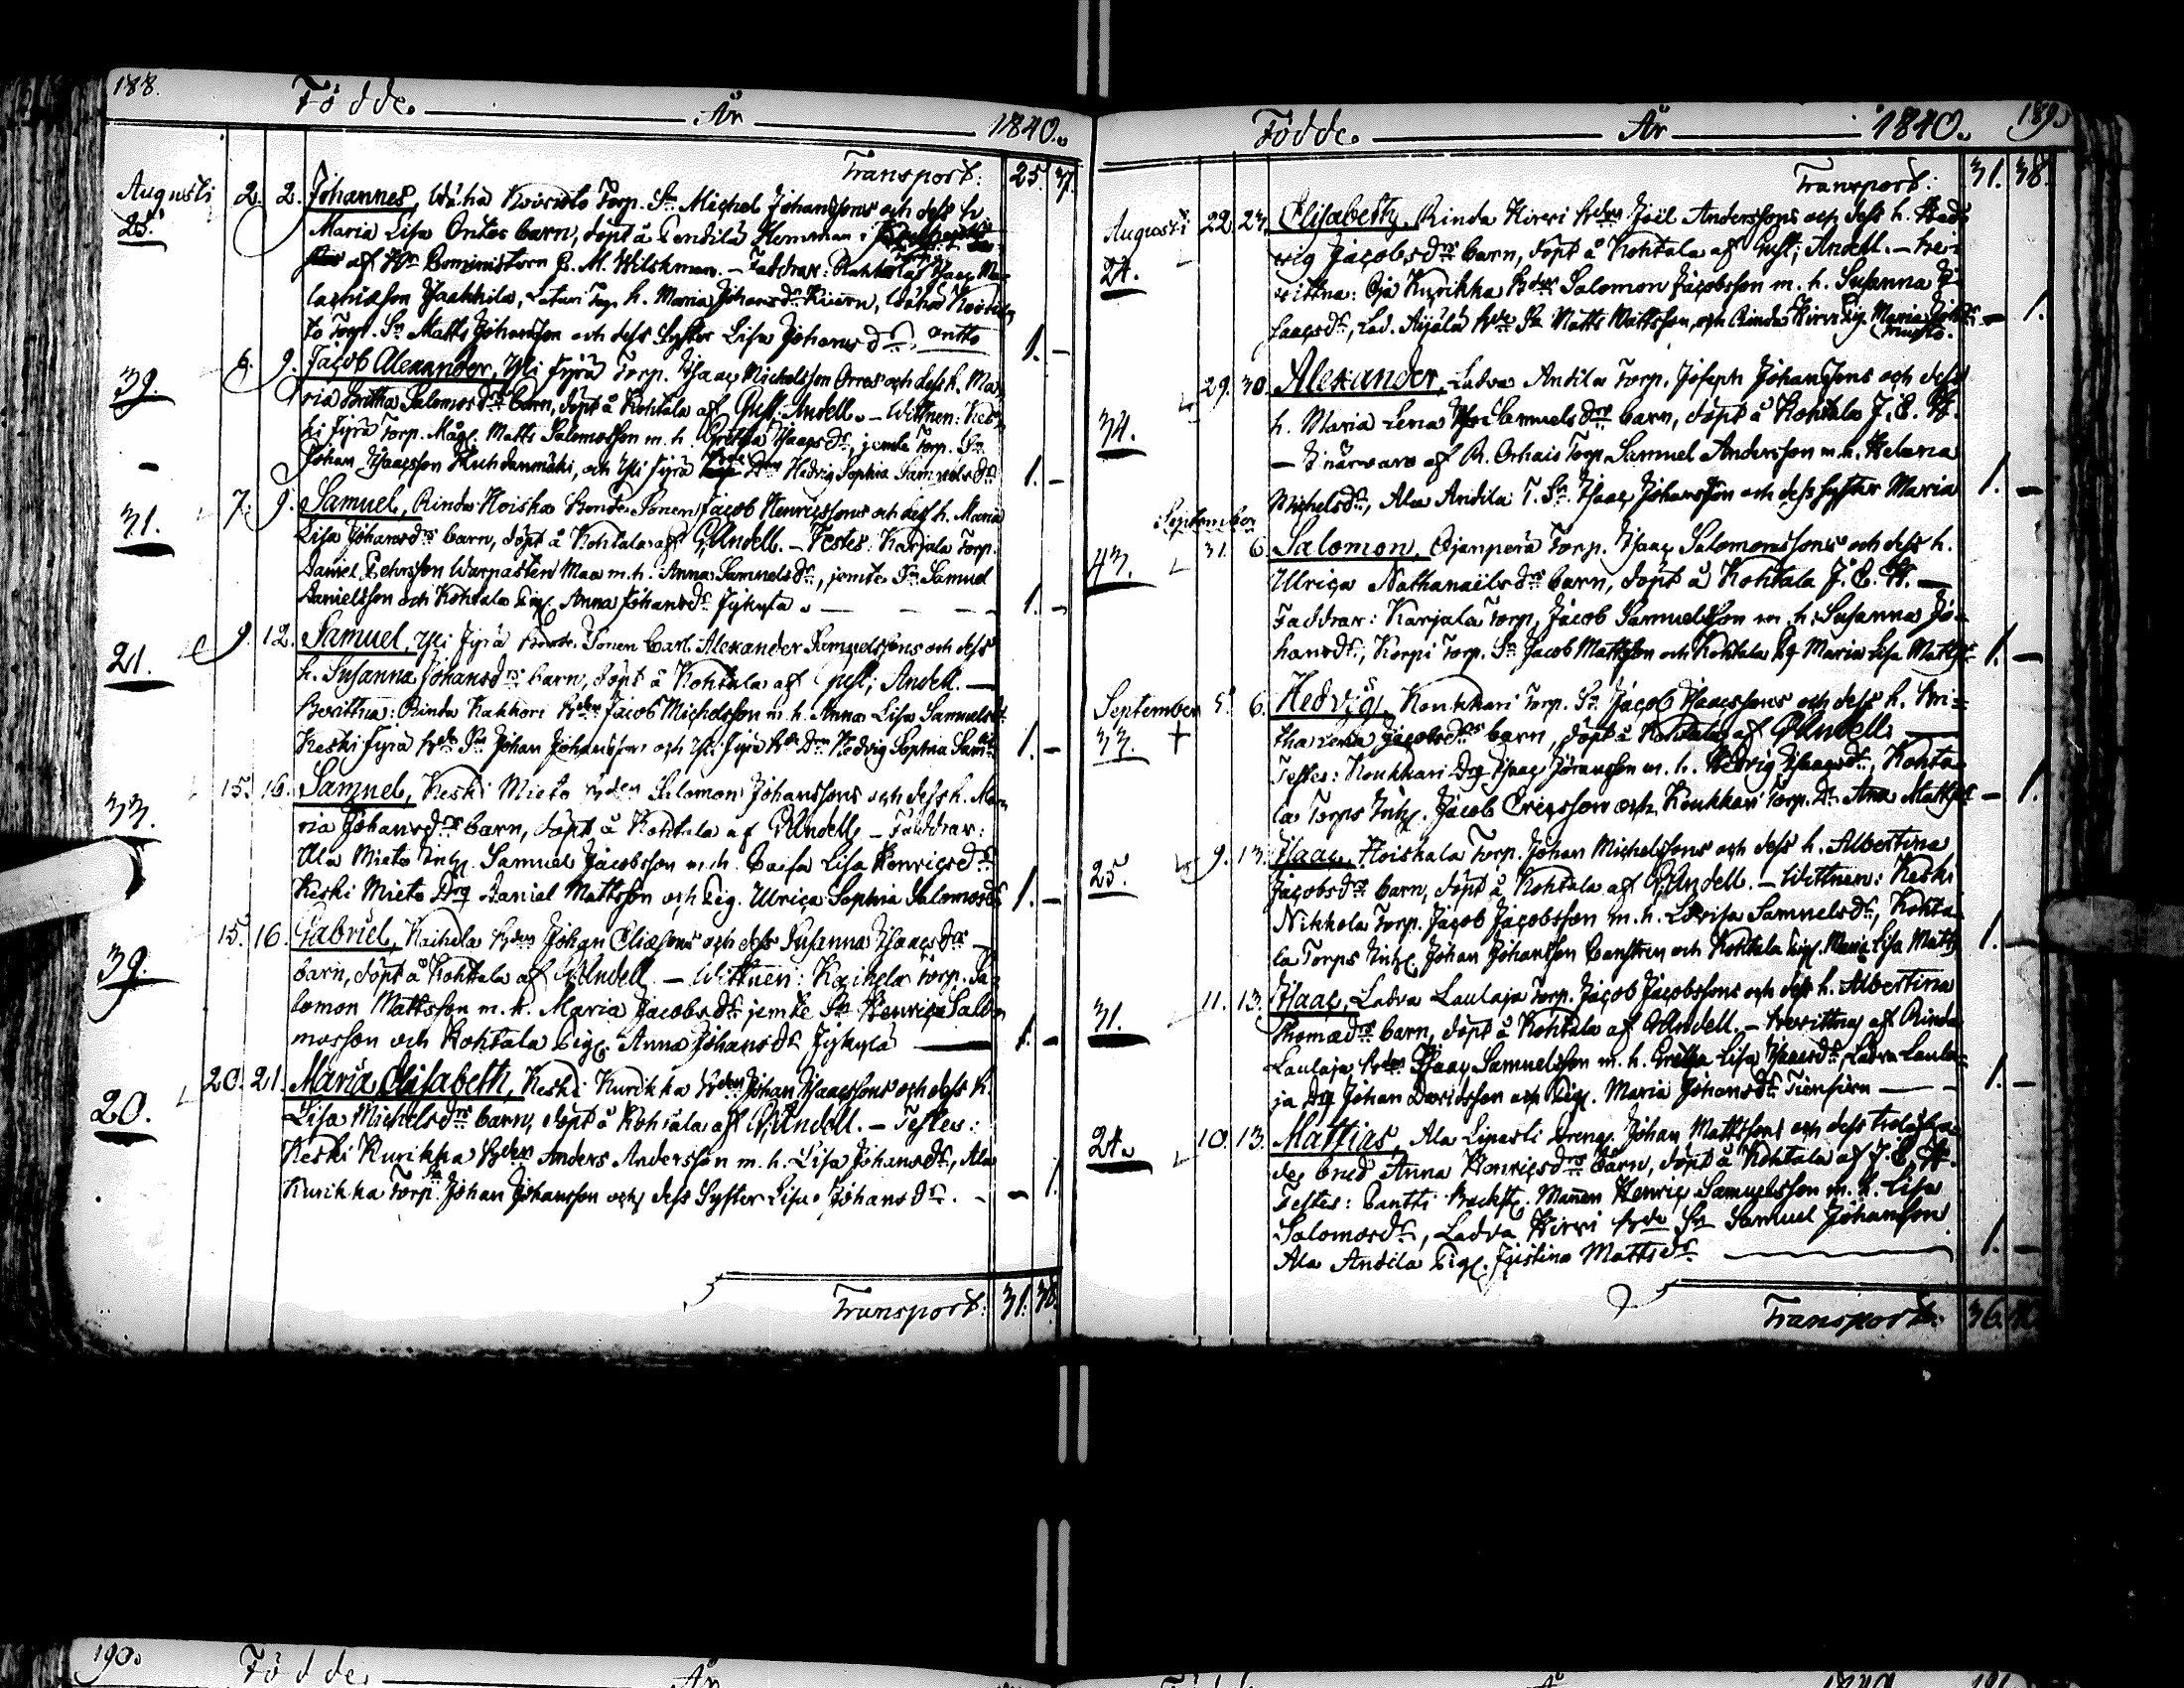 188.
Födde. År 1840.
Transport: 25. 37.
Augusti 2. 2. Johannes, Wähä Koivisto Torp. Sn Michel Johanssons och dess h.
25. Maria Lisa Ontos barn, döpt å Pentilä Hemman
af Hr Comministern C. M. Wilskman. – Faddrar: Isaac Ma-
lachiæson Jaakkila, h. Maria Johansdr Wähä Koivis-
to Torp. Sn Matts Johansson och dess Syster Lisa Johansdr Ontto 1. –
39. 6. 9. Jacob Alexander, Yli Jyrä Torp. Isaac Michelsson Orras och dess h. Ma-
ria Britha Salomosdrs barn, döpt å Kohtala af Gust: Andell. – Wittnen: Kes-
ki Jyrä Torp. Måg. Matts Salomosson m. h. Gretha Isaacsdr, jemte Torp. Sn
Johan Isaacsson Huhdanmäki, och Yli Jyrä Drn Hedvig Sophia Samuelsdr 1. –
31. 7. 9. Samuel, Rinda Koiska Bonde Sonen Jacob Henricssons och dess h. Maria
Lisa Johansdrs barn, döpt å Kohtala af G. Andell. – Testes: Karjala Torp.
Daniel Pehrsson Warpasten Maa m. h. Anna Samuelsdr, jemte Sn Samuel
Danielsson och Kohtala Pig. Anna Johansdr Jyhytä 1. –
21. 9. 12. Samuel, Yli Jyrä Bonde Sonen Carl Alexander Samuelssons och dess
h. Susanna Johansdrs barn, döpt å Kohtala af Gust; Andell. –
Bevittna: Rinda Kakkori Bden Jacob Michelsson m. h. Anna Lisa Samuelsdr
Keski Jyrä Bde Sn Johan Johansson och Yli Jyrä Bde Drn Hedvig Sophia Sam:dr 1. –
33. 15. 16. Samuel, Keski Mieto Bden Salomon Johanssons och dess h. Ma-
ria Johansdrs barn, döpt å Kohtala af G. Andell – Faddrar:
Ala Mieto Inh. Samuel Jacobsson m. h. Caisa Lisa Henricsdr
Keski Mieto Drg Daniel Mattsson och Pig. Ulrica Sophia Salomosdr 1. –
39. 15. 16. Gabriel, Kaihela Bden Johan Eliæsons och dess Susanna Isaacsdrs
barn, döpt å Kohtala af G. Andell – Wittnen: Kaihela Torp. Sa-
lomon Mattsson m. h. Maria Jacobsdr jemte Sn Henric Salo-
mosson och Kohtala Pig. Anna Johansdr Jyhytä 1. –
20. 20. 21. Maria Elisabeth, Keski Kurikka Bden Johan Isaacssons och dess h.
Lisa Michelsdrs barn, döpt å Kohtala af G. Andell. – Testes:
Keski Kurikka Bden Anders Andersson m. h. Lisa Johansdr, Ala
Kurikka Torp. Sn Johan Johansson och dess Syster Lisa Johansdr. – 1.
Transport: 31. 38.
Födde. År 1840. 189.
Transport: 31. 38.
Augusti 22. 23. Elisabeth, Rinda Hirvi Bden Joel Anderssons och dess h. Hed-
24. vig Jacobsdrs barn, döpt å Kohtala af Gust; Andell. – Bevi-
vittna: Oja Kurikka Bden Salomon Jacobsson m. h. Susanna I-
saacsdr, Lad. Äijälä Bde Sn Matts Mattsson, och Rinda Hirvi Pig. Maria Joh:dr – 1.
34. 29. 30. Alexander, Ladva Antila Torp. Joseph Johanssons och dess
h. Maria Lena Samuelsdrs barn, döpt å Kohtala J. E. W.
– I närvaro af R. Orhais Torp. Samuel Andersson m. h. Helena
Michelsdr, Ala Andila T. Sn. Isaac Johansson och dess syster Maria 1. –
September
43. 31. 6. Salomon, Ojanperä Torp. Isaac Salomonssons och dess h.
Ulrica Nathanaëlsdrs barn, döpt å Kohtala J. E. W. –
Faddrar: Karjala Torp. Jacob Samuelsson m. h. Susanna Jo-
hansdr, Korpi Torp. Sn Jacob Mattsson och Kohtala Pig Maria Lisa Mattsdr 1. –
September 5. 6. Hedvig, Koukkari Torp. Sn Jacob Isaacssons och dess h. Bri-
33. + tha Lena Jacobsdrs barn, döpt å Kohtala af G. Andell.
Testes: Koukkari Drg Isaac Jöransson m. h. Hedvig Isaacsdr, Kohta-
la Torps Inh. Jacob Ericsson och Koukkari Torp. Dr. Ana Mattsdr – 1.
25. 9. 13. Isaac, Koiskala Torp. Johan Michelssons och dess h. Albertina
Jacobsdrs barn, döpt å Kohtala af G. Andell. – Wittnen: Keski
Nikkola Torp. Jacob Jacobsson m. h. Lovisa Samuelsdr, Kohta-
la Torps Inh. Johan Johansson och Kohtala Pig. Maria Lisa Mattsdr 1. –
31. 11. 13. Isaac, Ladva Laulaja Torp. Jacob Jacobssons och dess h. Albertina
Thomædrs barn, döpt å Kohtala af G. Andell. – Bevittnas af Rinda
Laulaja Bden Isaac Samuelsson m. h. Gretha Lisa Isaacsdr, Ladva Laula-
ja Drg Johan Davidsson och Pig. Maria Johansdr 1. –
24. 10. 13. Mattias, Ala Lipasti Dreng. Johan Mattssons och dess trolofva-
de brud Anna Henricsdrs barn, döpt å Kohtala af J. E. W.
Testes: Pantti Backst. Mannen Henric Samuelsson m. h. Lisa
Salomosdr, Ladva Hirvi Bde Sn Samuel Johansson
Ala Andila Pig. Justina Mattsdr 1. –
Transport: 36.
190.
Födde. År